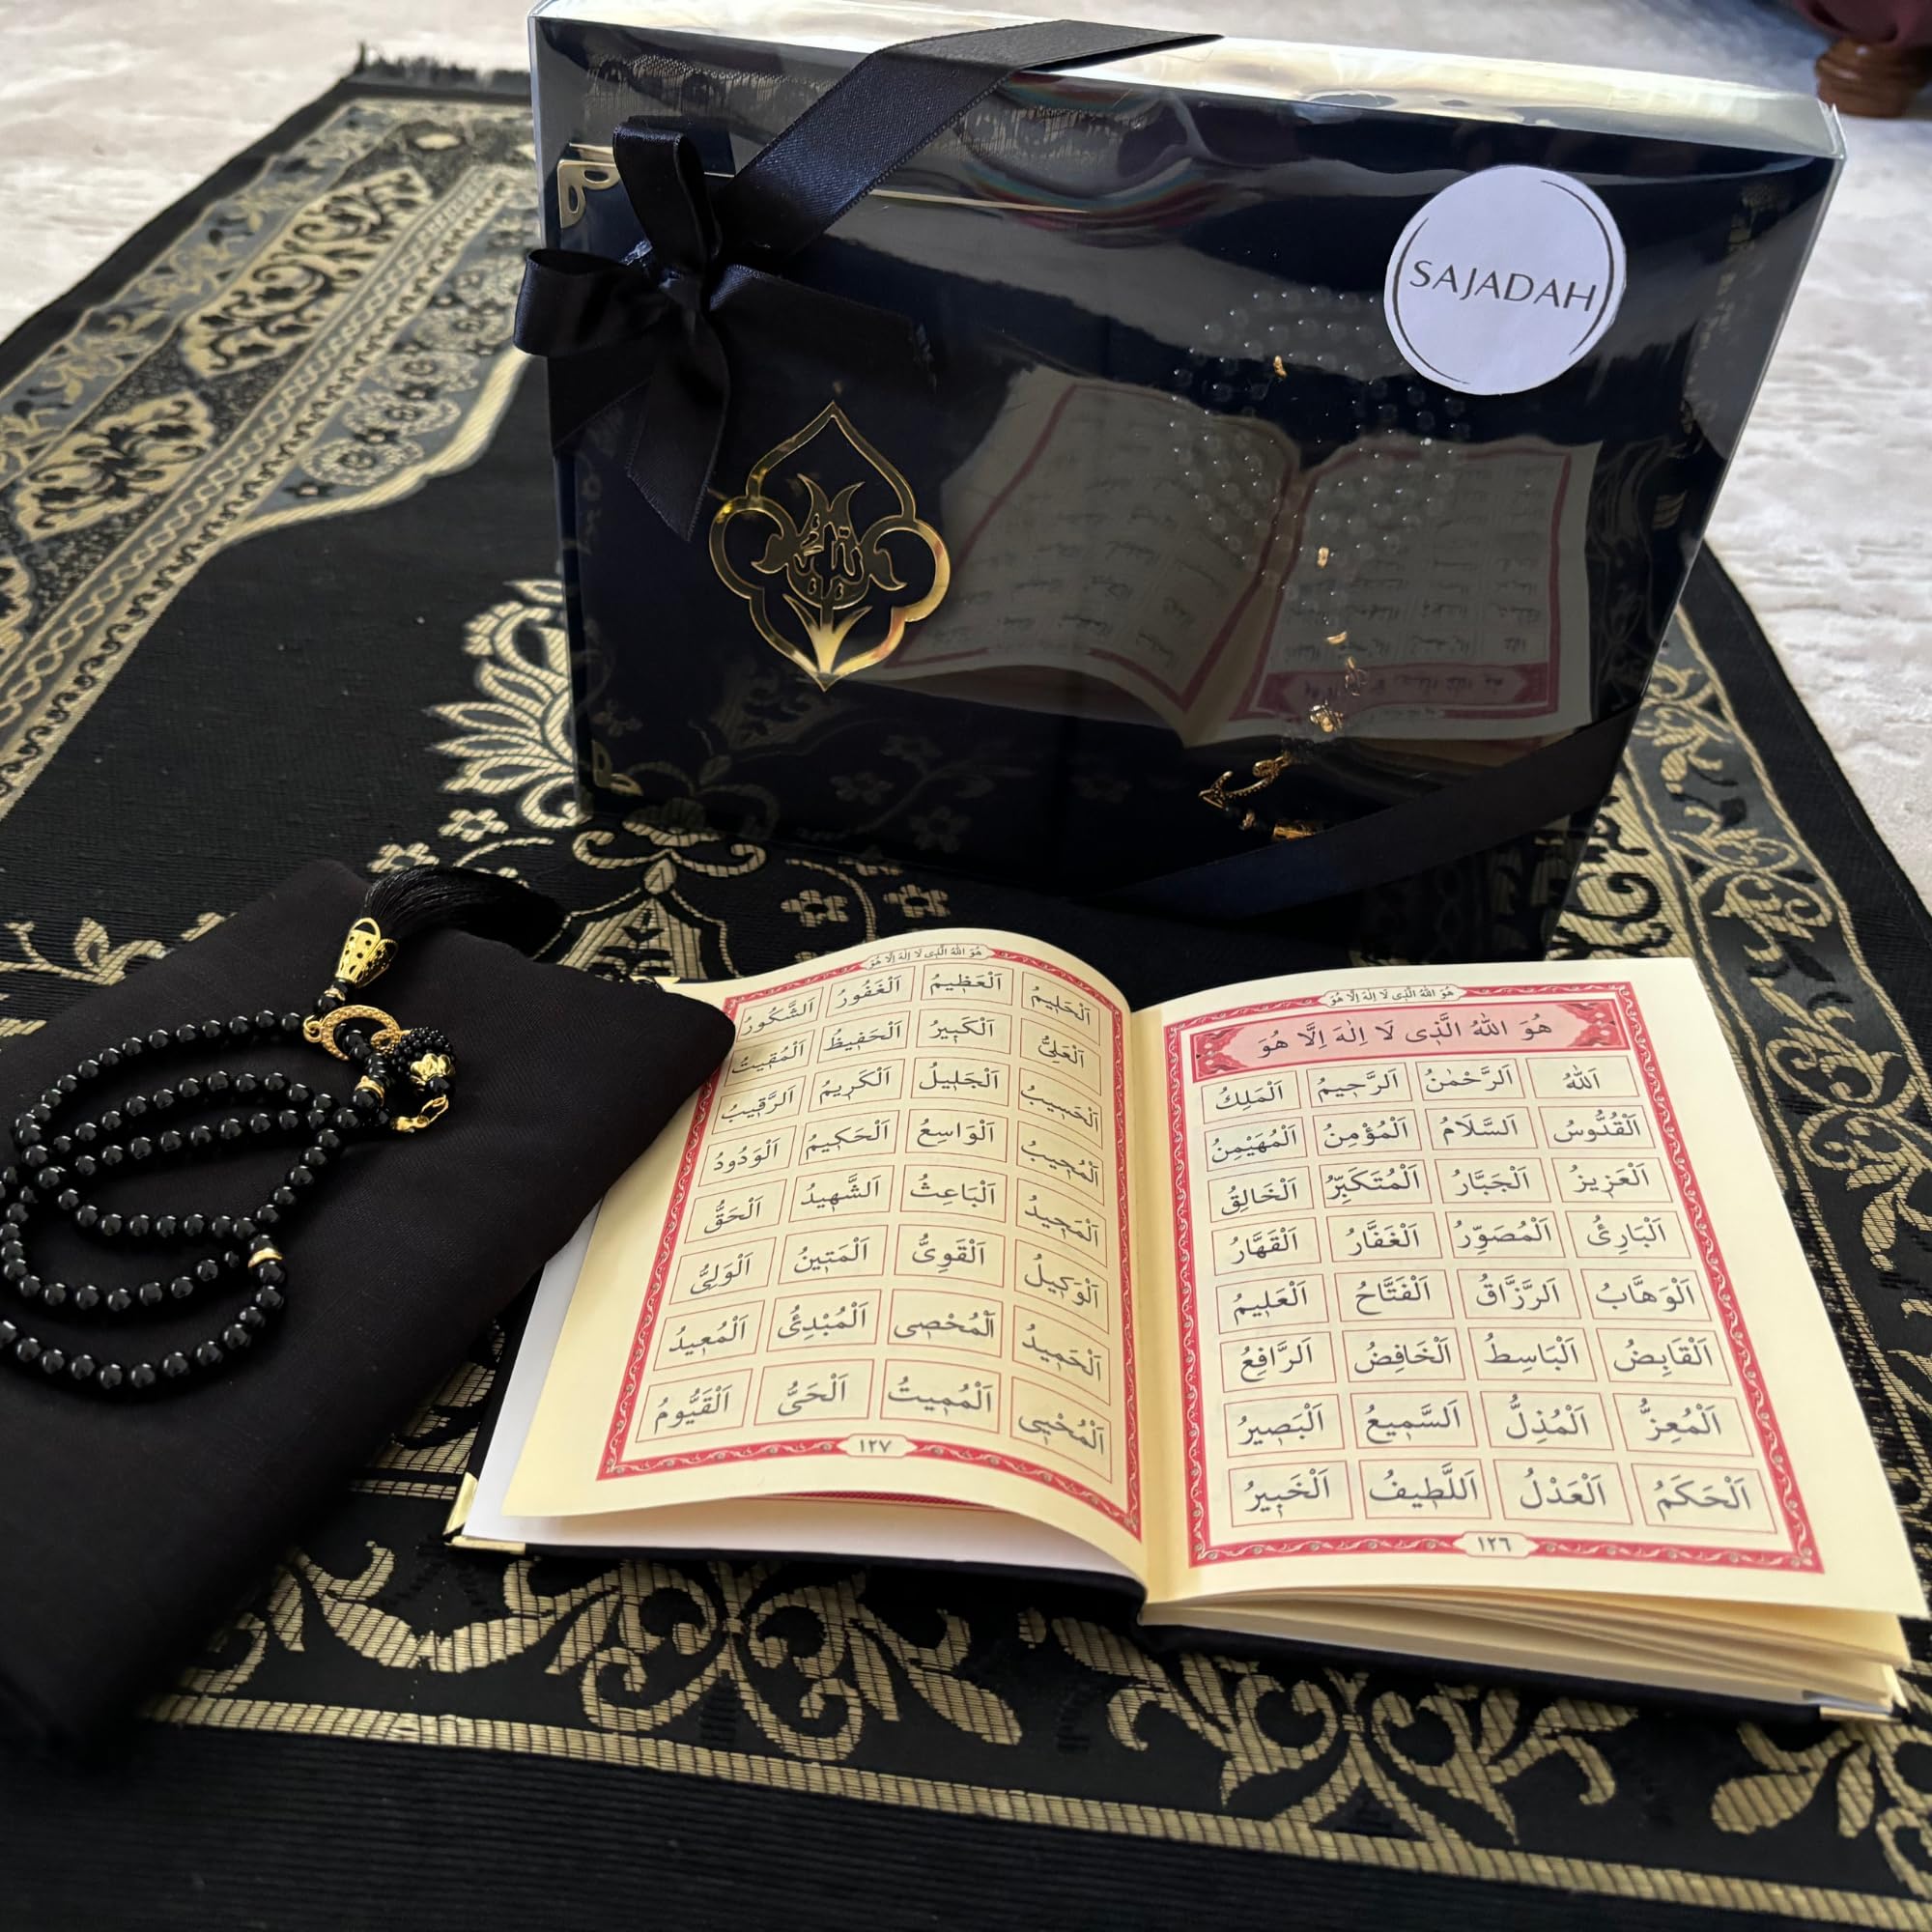 SAJADAH
هُوَ اللّٰهُ الَّذِى لَا اِلٰهَ اِلَّا هُوَ
هُوَ اللّٰهُ الَّذِى لَا اِلٰهَ اِلَّا هُوَ
اَللّٰهُ اَلرَّحْمٰنُ اَلرَّحِيمُ اَلْمَلِكُ
اَلْقُدُّوسُ اَلسَّلَامُ اَلْمُؤْمِنُ اَلْمُهَيْمِنُ
اَلْعَزِيزُ اَلْجَبَّارُ اَلْمُتَكَبِّرُ اَلْخَالِقُ
اَلْبَارِئُ اَلْمُصَوِّرُ اَلْغَفَّارُ اَلْقَهَّارُ
اَلْوَهَّابُ اَلرَّزَّاقُ اَلْفَتَّاحُ اَلْعَلِيمُ
اَلْقَابِضُ اَلْبَاسِطُ اَلْخَافِضُ اَلرَّافِعُ
اَلْمُعِزُّ اَلْمُذِلُّ اَلسَّمِيعُ اَلْبَصِيرُ
اَلْحَكَمُ اَلْعَدْلُ اَللَّطِيفُ اَلْخَبِيرُ
١٢٦
هُوَ اللّٰهُ الَّذِى لَا اِلٰهَ اِلَّا هُوَ
اَلْحَلِيمُ اَلْعَظِيمُ اَلْغَفُورُ اَلشَّكُورُ
اَلْعَلِىُّ اَلْكَبِيرُ اَلْحَفِيظُ اَلْمُقِيتُ
اَلْحَسِيبُ اَلْجَلِيلُ اَلْكَرِيمُ اَلرَّقِيبُ
اَلْمُجِيبُ اَلْوَاسِعُ اَلْحَكِيمُ اَلْوَدُودُ
اَلْمَجِيدُ اَلْبَاعِثُ اَلشَّهِيدُ اَلْحَقُّ
اَلْوَكِيلُ اَلْقَوِىُّ اَلْمَتِينُ اَلْوَلِىُّ
اَلْحَمِيدُ اَلْمُحْصِى اَلْمُبْدِئُ اَلْمُعِيدُ
اَلْمُحْيِى اَلْمُمِيتُ اَلْحَىُّ اَلْقَيُّومُ
١٢٧